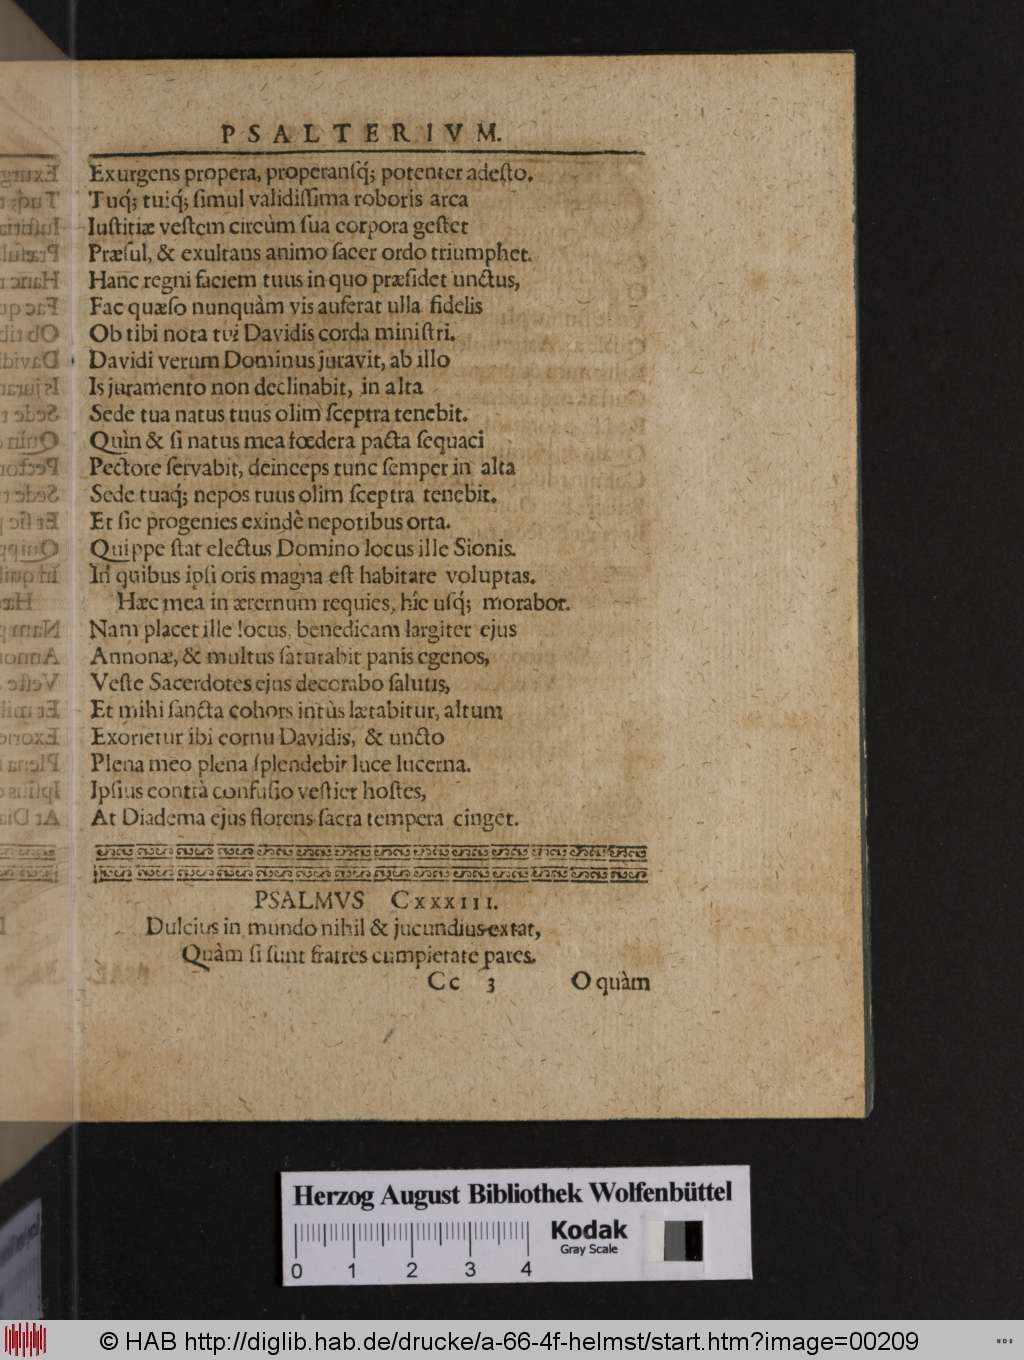 PSALTERIVM.
Exurgens propera, properanſq́; potenter adeſto,
Tuq́; tuiq́; ſimul validiſſima roboris arca
Iuſtitiæ veſtem circùm ſua corpora geſtet
Præſul, & exultans animo ſacer ordo triumphet.
Hanc regni faciem tuus in quo præſidet unctus,
Fac quæſo nunquàm vis auferat ulla fidelis
Ob tibi nota tui Davidis corda miniſtri.
Davidi verum Dominus juravit, ab illo
Is juramento non declinabit, in alta
Sede tua natus tuus olim ſceptra tenebit.
Quin & ſi natus mea fœdera pacta ſequaci
Pectore ſervabit, deinceps tunc ſemper in alta
Sede tuaq́; nepos tuus olim ſceptra tenebit.
Et ſic progenies exindè nepotibus orta.
Quippe ſtat electus Domino locus ille Sionis.
In quibus ipſi oris magna eſt habitare voluptas.
Hæc mea in æternum requies, hîc uſq́; morabor.
Nam placet ille locus, benedicam largiter ejus
Annonæ, & multus ſaturabit panis egenos,
Veſte Sacerdotes ejus decorabo ſalutis,
Et mihi ſancta cohors intùs lætabitur, altum
Exorietur ibi cornu Davidis, & uncto
Plena meo plena ſplendebit luce lucerna.
Ipſius contrà confuſio veſtiet hoſtes,
At Diadema ejus florens ſacra tempera cinget.
PSALMVS CXXXIII.
Dulcius in mundo nihil & jucundius extat,
Quàm ſi ſunt fratres cum pietate pares.
Cc 3 O quàm
Herzog August Bibliothek Wolfenbüttel
Kodak
Gray Scale
0 1 2 3 4
© HAB http://diglib.hab.de/drucke/a-66-4f-helmst/start.htm?image=00209